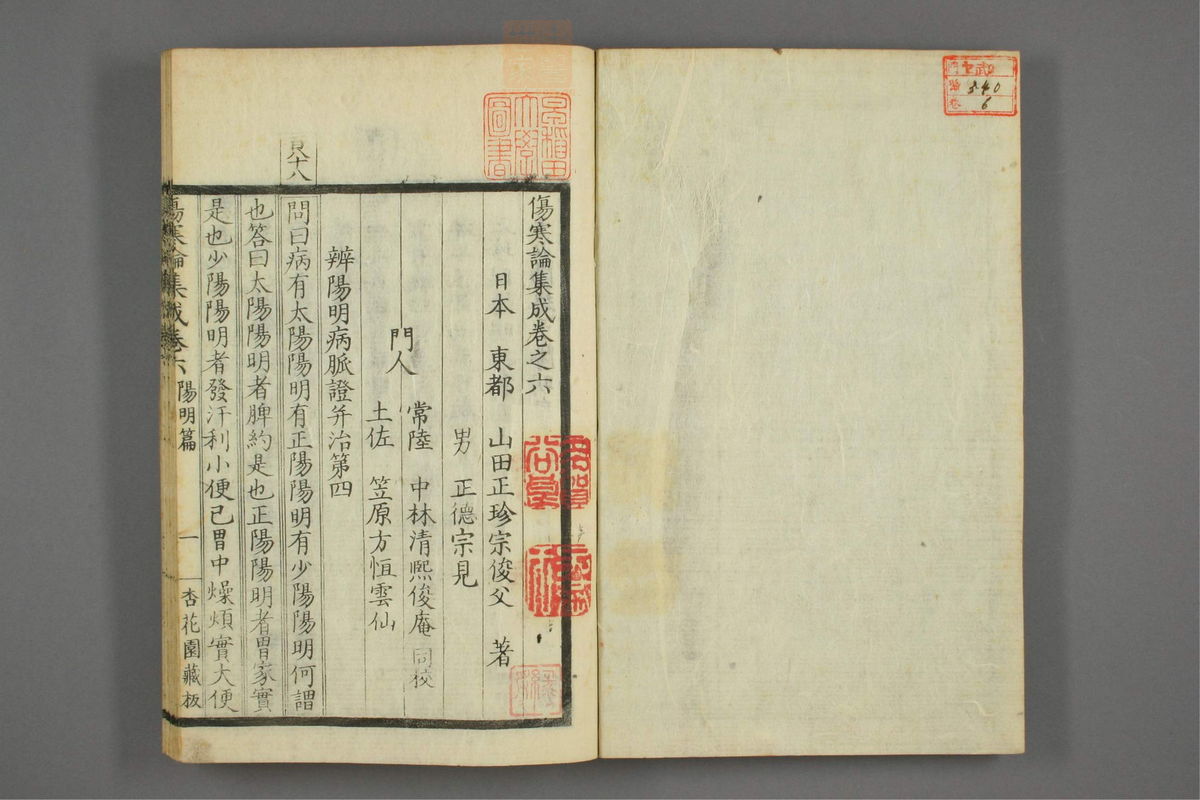 傷寒論集成卷之六
日本 東都 山田正珍宗俊父 著
男 正德宗見
門人
常陸 中林清熙俊庵 同校
土佐 笠原方恒雲仙
辨陽明病脈證并治第四
百十八
問曰病有太陽陽明有正陽陽明有少陽陽明何謂
也答曰太陽陽明者脾約是也正陽陽明者胃家實
是也少陽陽明者發汗利小便已胃中燥煩實大便
傷寒論集成卷六 陽明篇 一 杏花園藏板
早稲田大學圖書
340
6